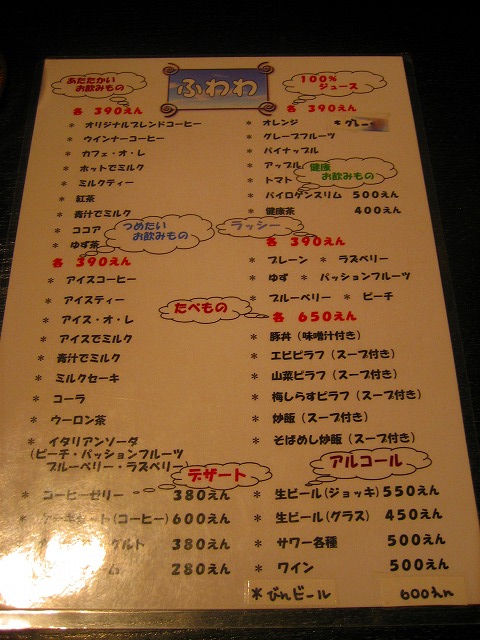 ふわわ
あたたかい
お飲みもの
各 390えん
* オリジナルブレンドコーヒー
* ウインナーコーヒー
* カフェ・オ・レ
* ホットでミルク
* ミルクティー
* 紅茶
* 青汁でミルク
* ココア
* ゆず茶
つめたい
お飲みもの
各 390えん
* アイスコーヒー
* アイスティー
* アイス・オ・レ
* アイスでミルク
* 青汁でミルク
* ミルクセーキ
* コーラ
* ウーロン茶
* イタリアンソーダ
(ピーチ・パッションフルーツ
ブルーベリー・ラズベリー)
100%
ジュース
各 390えん
* オレンジ
* グレープフルーツ
* パイナップル
* アップル
* トマト
健康
お飲みもの
* パイロゲンスリム 500えん
* 健康茶 400えん
ラッシー
各 390えん
* プレーン * ラズベリー
* ゆず * パッションフルーツ
* ブルーベリー * ピーチ
たべもの
各 650えん
* 豚丼(味噌汁付き)
* エビピラフ(スープ付き)
* 山菜ピラフ(スープ付き)
* 梅しらすピラフ(スープ付き)
* 炒飯(スープ付き)
* そばめし炒飯(スープ付き)
デザート
* コーヒーゼリー 380えん
* ケーキセット(コーヒー)600えん
380えん
280えん
アルコール
* 生ビール(ジョッキ)550えん
* 生ビール(グラス) 450えん
* サワー各種 500えん
* ワイン 500えん
* びんビール 600えん